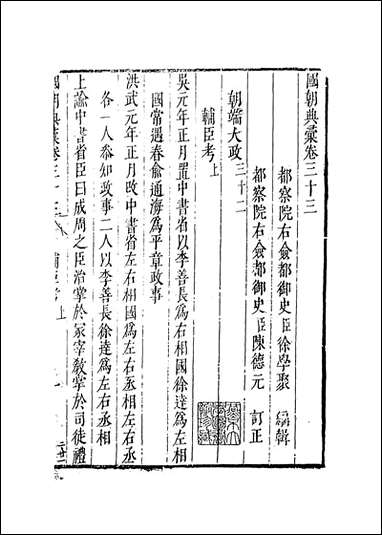 國朝典彙卷三十三
都察院右僉都御史臣徐學聚 編輯
都察院右僉都御史臣陳德元 訂正
朝端大政三十二
輔臣考上
吳元年正月置中書省以李善長為右相國徐達為左相
國常遇春俞通海為平章政事
洪武元年正月改中書省左右相國為左右丞相
各一人參知政事二人以李善長徐達為左右丞相
上諭中書省臣曰成周之臣治掌於冢宰教掌於司徒禮
國朝典彙卷三十三 輔臣考上